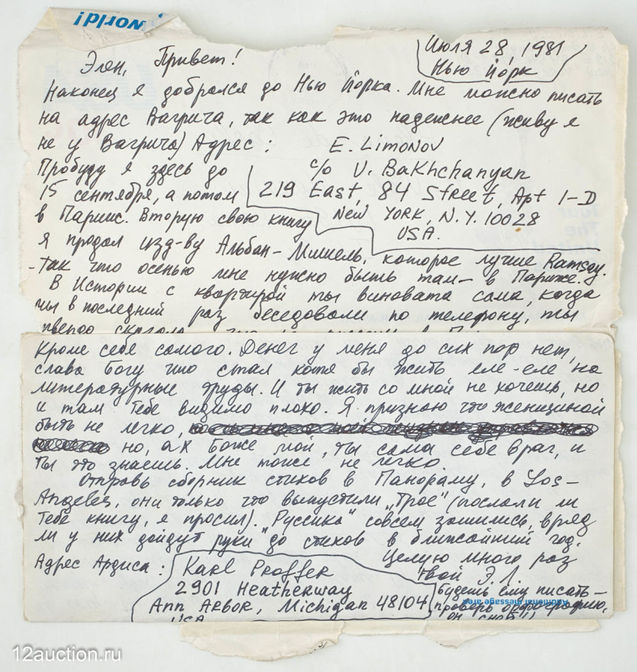 world!
Июля 28, 1981
Нью Йорк
Элен, Привет!
Наконец я добрался до Нью Йорка. Мне можно писать
на адрес Вагрича, так как это надежнее (живу я
не у Вагрича) Адрес: E. Limonov
Пробуду я здесь до c/o V. Bakhchanyan
15 сентября, а потом 219 East, 84 Street, Apt 1-D
в Париж. Вторую свою книгу New York, N.Y. 10028
USA.
я продал изд-ву Альбан-Мишель, которое лучше Ramsay.
-Так что осенью мне нужно быть там - в Париже.
В Истории с квартирой ты виновата сама, когда
мы в последний раз беседовали по телефону, ты
твердо сказала
кроме себе самого. Денег у меня до сих пор нет,
слава Богу что стал хотя бы жить еле-еле на
литературные труды. И ты жить со мной не хочешь, но
и там тебе видимо плохо. Я признаю что женщиной
быть не легко,
но, ах Боже мой, ты сама себе враг, и
ты это знаешь. Мне тоже не легко.
Отправь сборник стихов в Панораму, в Los-
Angeles, они только что выпустили "Трое" (послали ли
тебе книгу, я просил). "Руссика" совсем зашились, вряд
ли у них дойдут руки до стихов в ближайший год.
Целую много раз
твой Э.Л.
Адрес Ардиса: Karl Proffer
2901 Heatherway
Ann Arbor, Michigan 48104
USA
будешь ему писать-
проверь орфографию,
он сноб!!
Additional message area
12auction.ru